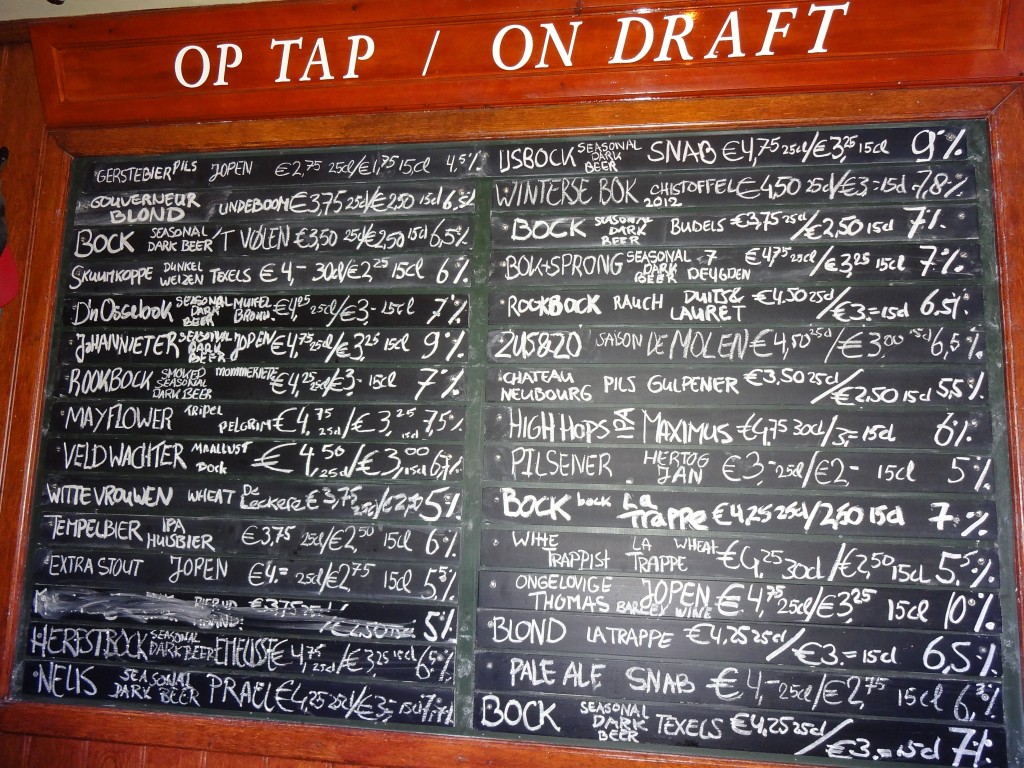 OP TAP / ON DRAFT
GERSTEBIER PILS JOPEN €2,75 25cl/€1,75 15cl 4,5%
GOUVERNEUR BLOND LINDEBOOM €3,75 25cl/€2,50 15cl 6,5%
BOCK SEASONAL DARK BEER 'T VOLEN €3,50 25cl/€2,50 15cl 6,5%
SKUUMKOPPE DUNKEL WEIZEN TEXELS €4,- 30cl/€2,25 15cl 6%
D'n Ossebock SEASONAL DARK BEER MUIFEL BROUW. €4,25 25cl/€3,- 15cl 7%
JOHANNIETER SEASONAL DARK BEER JOPEN €4,75 25cl/€3,25 15cl 9%
ROOKBOCK SMOKED SEASONAL DARK BEER MOMMERIETE €4,25 25cl/€3,- 15cl 7%
MAYFLOWER TRIPEL PELGRIM €4,75 25cl/€3,25 15cl 7,5%
VELDWACHTER MAALLUST BOCK €4,50 25cl/€3,00 15cl
WITTE VROUWEN WHEAT De Leckere €3,75 25cl/€2,50 5%
TEMPELBIER IPA HUISBIER €3,75 25cl/€2,50 15cl 6%
EXTRA STOUT JOPEN €4.= 25cl/€2,75 15cl 5,5%
5%
HERBSTBOCK SEASONAL DARK BEER EMELISSE €4,75 25cl/€3,25 15cl 6,5%
NELIS SEASONAL DARK BEER PRAEL €4,25 25cl/€3,- 15cl 7,7%
IJSBOCK SEASONAL DARK BEER SNAB €4,75 25cl/€3,25 15cl 9%
WINTERSE BOK CHISTOFFEL 2012 €4,50 25cl/€3.= 15cl 7,8%
BOCK SEASONAL DARK BEER BUDELS €3,75 25cl/€2,50 15cl 7%
BOK+SPRONG SEASONAL DARK BEER 7 DEUGDEN €4,75 25cl/€3,25 15cl 7%
ROOKBOCK RAUCH DUITS& LAURET €4,50 25cl/€3.= 15cl 6,5%
ZUS&ZO SAISON DE MOLEN €4,50 25cl/€3,00 15cl 6,5%
CHATEAU NEUBOURG PILS GULPENER €3,50 25cl/€2.50 15cl 5,5%
HIGH HOPS IPA MAXIMUS €4,75 30cl/3,= 15cl 6%
PILSENER HERTOG JAN €3,- 25cl/€2- 15cl 5%
BOCK bock LA TRAPPE €4,25 25cl/2,50 15cl 7%
WITTE TRAPPIST LA TRAPPE WHEAT €4,25 30cl/€2,50 15cl 5,5%
ONGELOVIGE THOMAS JOPEN BARLEY WINE €4,75 25cl/€3,25 15cl 10%
BLOND LA TRAPPE €4,25 25cl/€3.= 15cl 6,5%
PALE ALE SNAB €4,- 25cl/€2,75 15cl 6,%
BOCK SEASONAL DARK BEER TEXELS €4,25 25cl/€3.= 15cl 7%